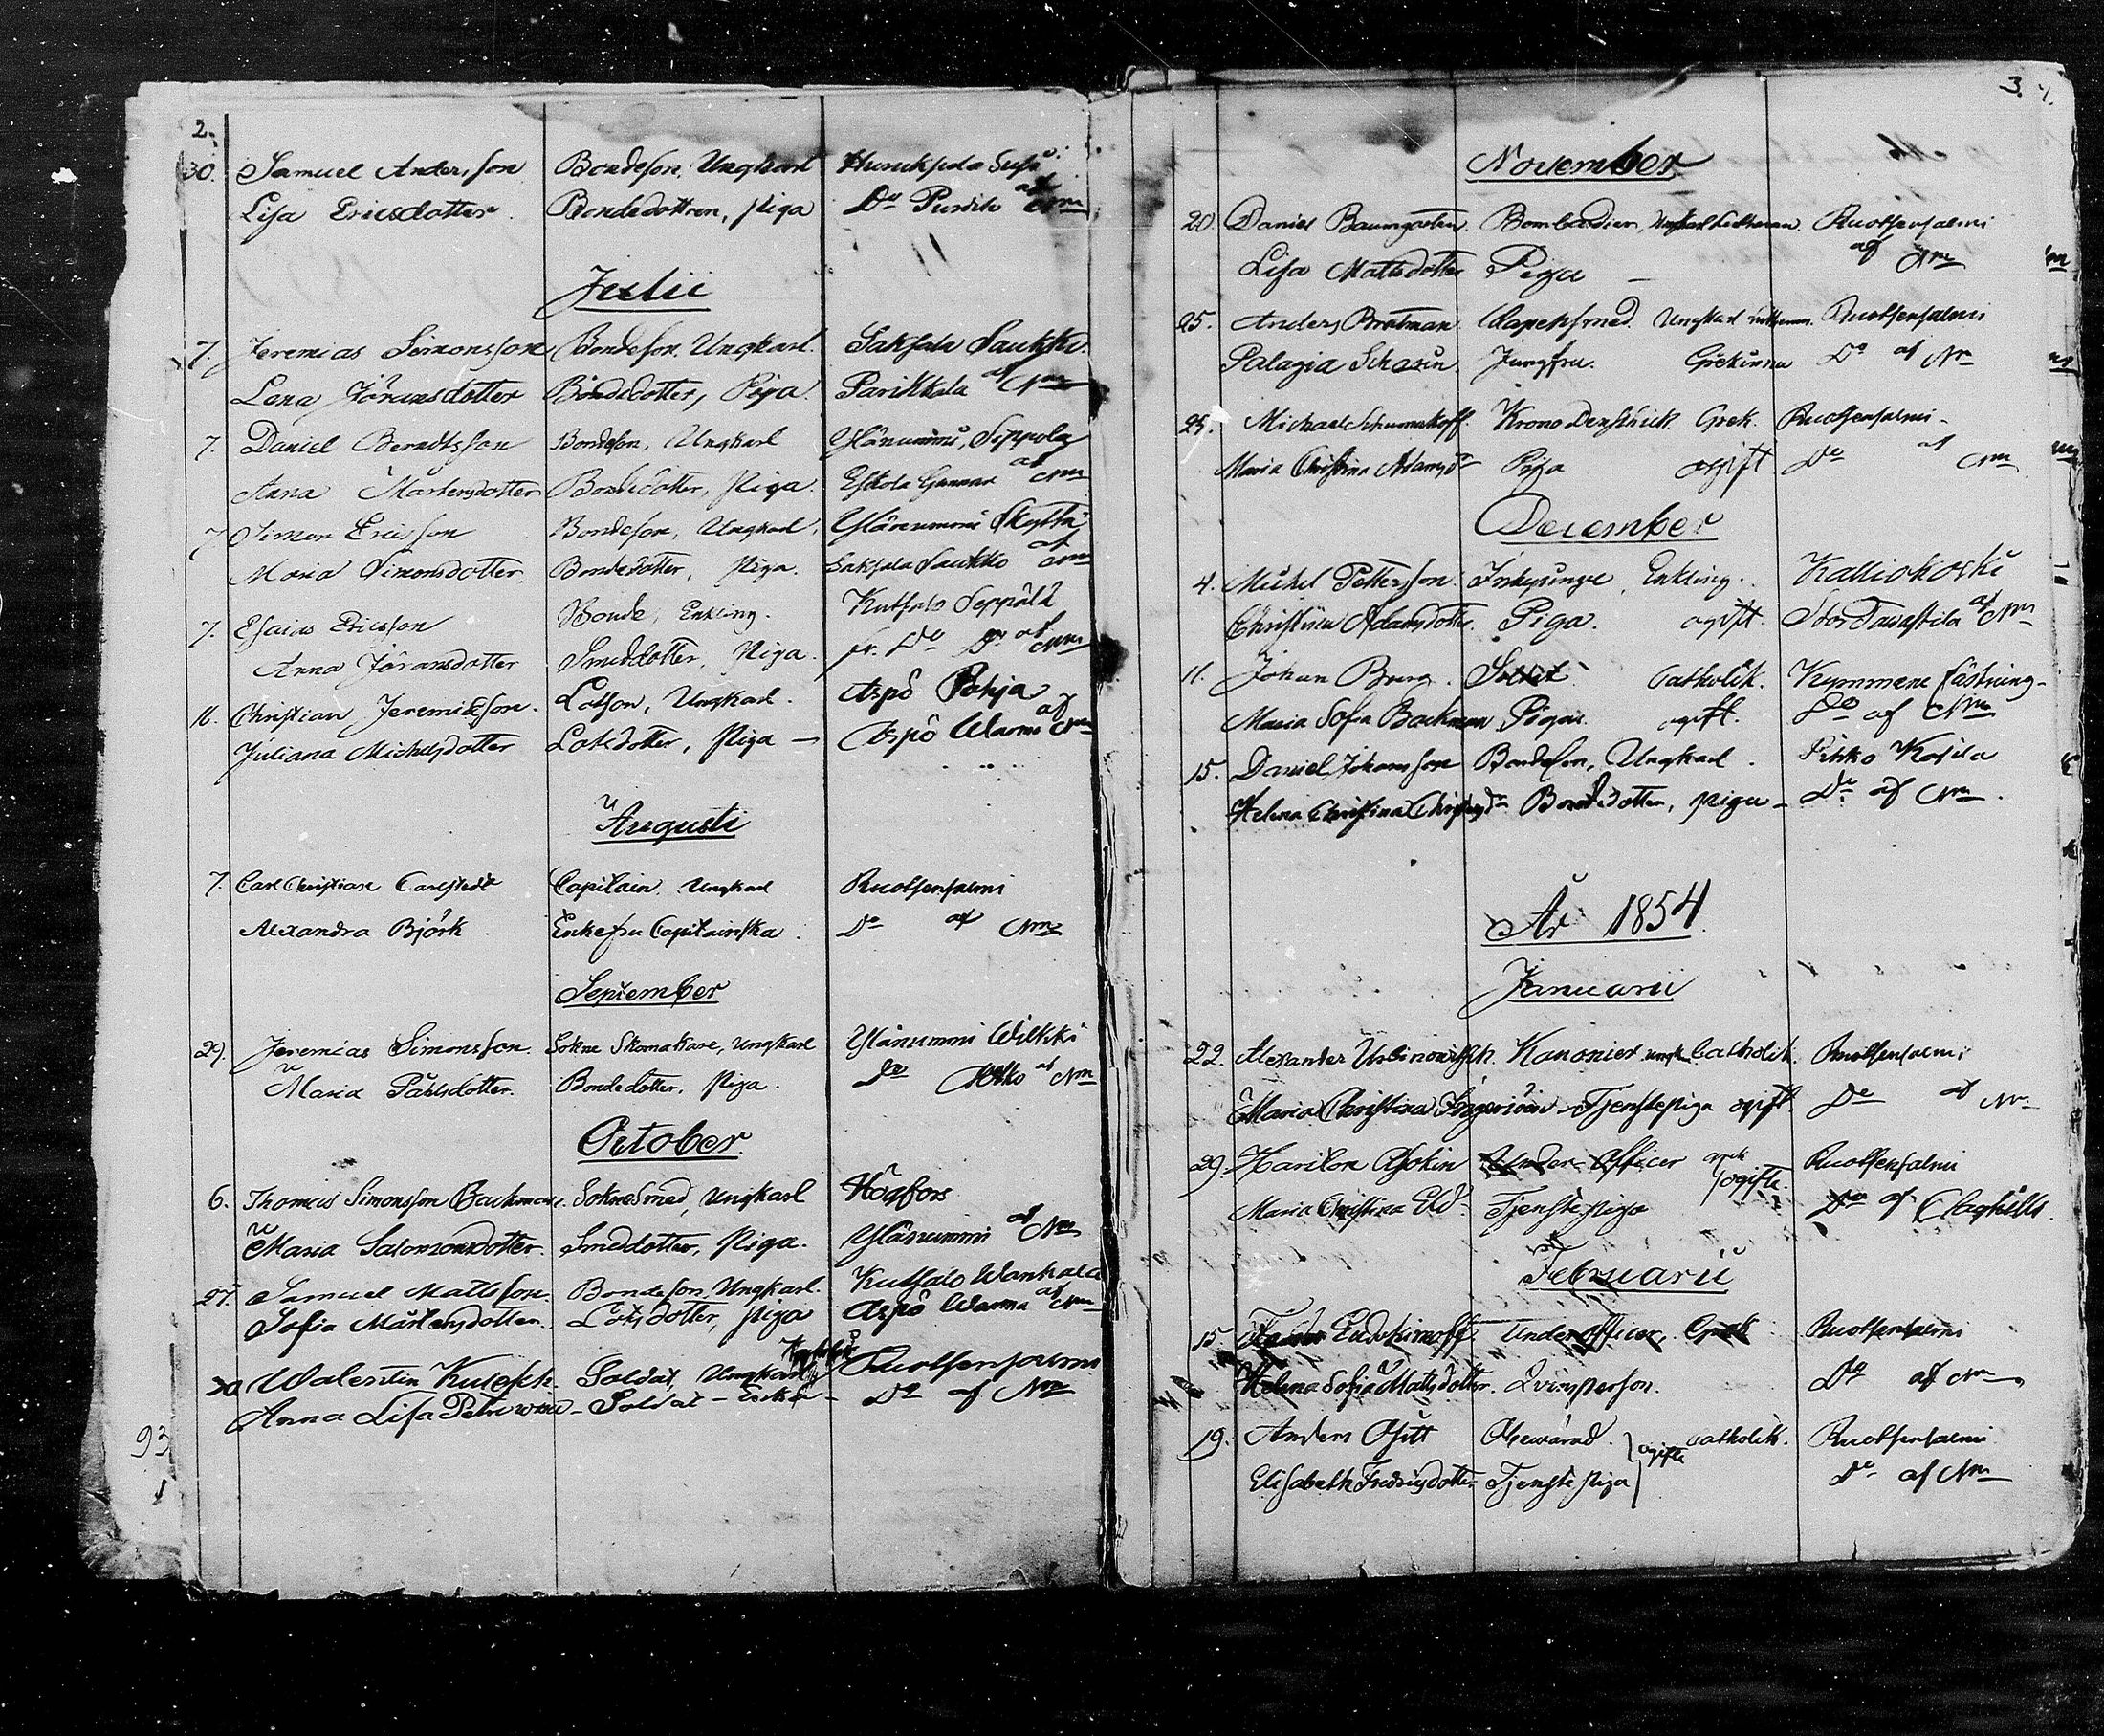 2.
30. Samuel Andersson Bondeson, Ungkarl Hurukfela
Lisa Ericsdotter. Bondedottren, Piga Do Purdih af Nm
Julii
7. Jeremias Simonsson Bondeson, Ungkarl. Saksala Saukko.
Lena Jöransdotter Bondedotter, Piga. Parikkala af Nm
7. Daniel Berndtsson Bondeson, Ungkarl Ylänummi, Seppola
Anna Mårtensdotter Bondedotter, Piga. Eskola Gunnar af Nm
7. Simon Ericsson Bondeson, Ungkarl. Ylänummi Skyttä
Maria Simonsdotter. Bondedotter, Piga. Saksala Saukko af Nm
7. Esaias Ericsson Bonde, Enkling. Kutsalo Seppälä
Anna Jöransdotter Smeddotter, Piga. fr. Do Do af Nm
16. Christian Jeremiæson. Lotson, Ungkarl. Aspö Pohja
Juliana Michelsdotter Lotsdotter, Piga — Aspö Warma af Nm
Augusti
7. Carl Christian Carlstedt Capitain. Ungkarl Ruotsensalmi
Alexandra Björk Enkefru Capitainska. Do af Nm
September
29. Jeremias Simonsson. Sokne Skomakare, Ungkarl Ylänummi Wilkki
Maria Påhlsdotter. Bondedotter, Piga. Do af Nm
October.
6. Thomas Simonsson Backman. Soknesmed, Ungkarl Högfors
Maria Salomonsdotter. Smeddotter, Piga. Ylänummi af Nm
27. Samuel Mattsson. Bondeson, Ungkarl. Kutsalo Wanhala
Sofia Mårtensdotter. Lotsdotter, Piga Aspö Warma af Nm
30 Walentin Soldat, Ungkarl Ruotsensalmi
Anna Lisa Petrowna - Soldat - Enka - Do af Nm
93
3.
November
20. Daniel Baumgarten. Bombardier, Ungkarl Lutheran. Ruotsensalmi
Lisa Mattsdotter Piga — af Nm
25. Anders Brotman Wapensmed. Ungkarl Ruotsensalmi
Palagia Jungfru. Grekinna Do af Nm
29. Michael Schumakoff. Krono Grek. Ruotsensalmi.
Maria Christina Adamsdr Piga ogift Do af Nm
December
4. Mickel Pettersson. Inhysinge, Enkling. Kalliokoski
Christina Adamsdotter. Piga. ogift. Stor Tavastila af Nm
11. Johan Burg. Catholik. Kymmene fästning.
Maria Sofia Backman Pigan. ogift. Do af Nm
15. Daniel Johansson Bondeson, Ungkarl. Pihko Kosila
Helena Christina Bondedotter, Piga - Do af Nm.
År 1854
Januarii
22. Alexander Kanonier ungk. Catholik. Ruotsensalmi
Maria Christina Tjenstepiga ogift. Do af Nm
29. Under-Officer ogifte. Ruotsensalmi
Maria Christina Tjenstepiga Do af
Februarii
15. Eudokimoff Underofficer, Grek Ruotsensalmi
Helena Sofia Mattsdotter. Qvinsperson. Do af Nm
19. Anders ogifte catholik. Ruotsensalmi
Elisabeth Fredricsdotter Tjenstepiga Do af Nm